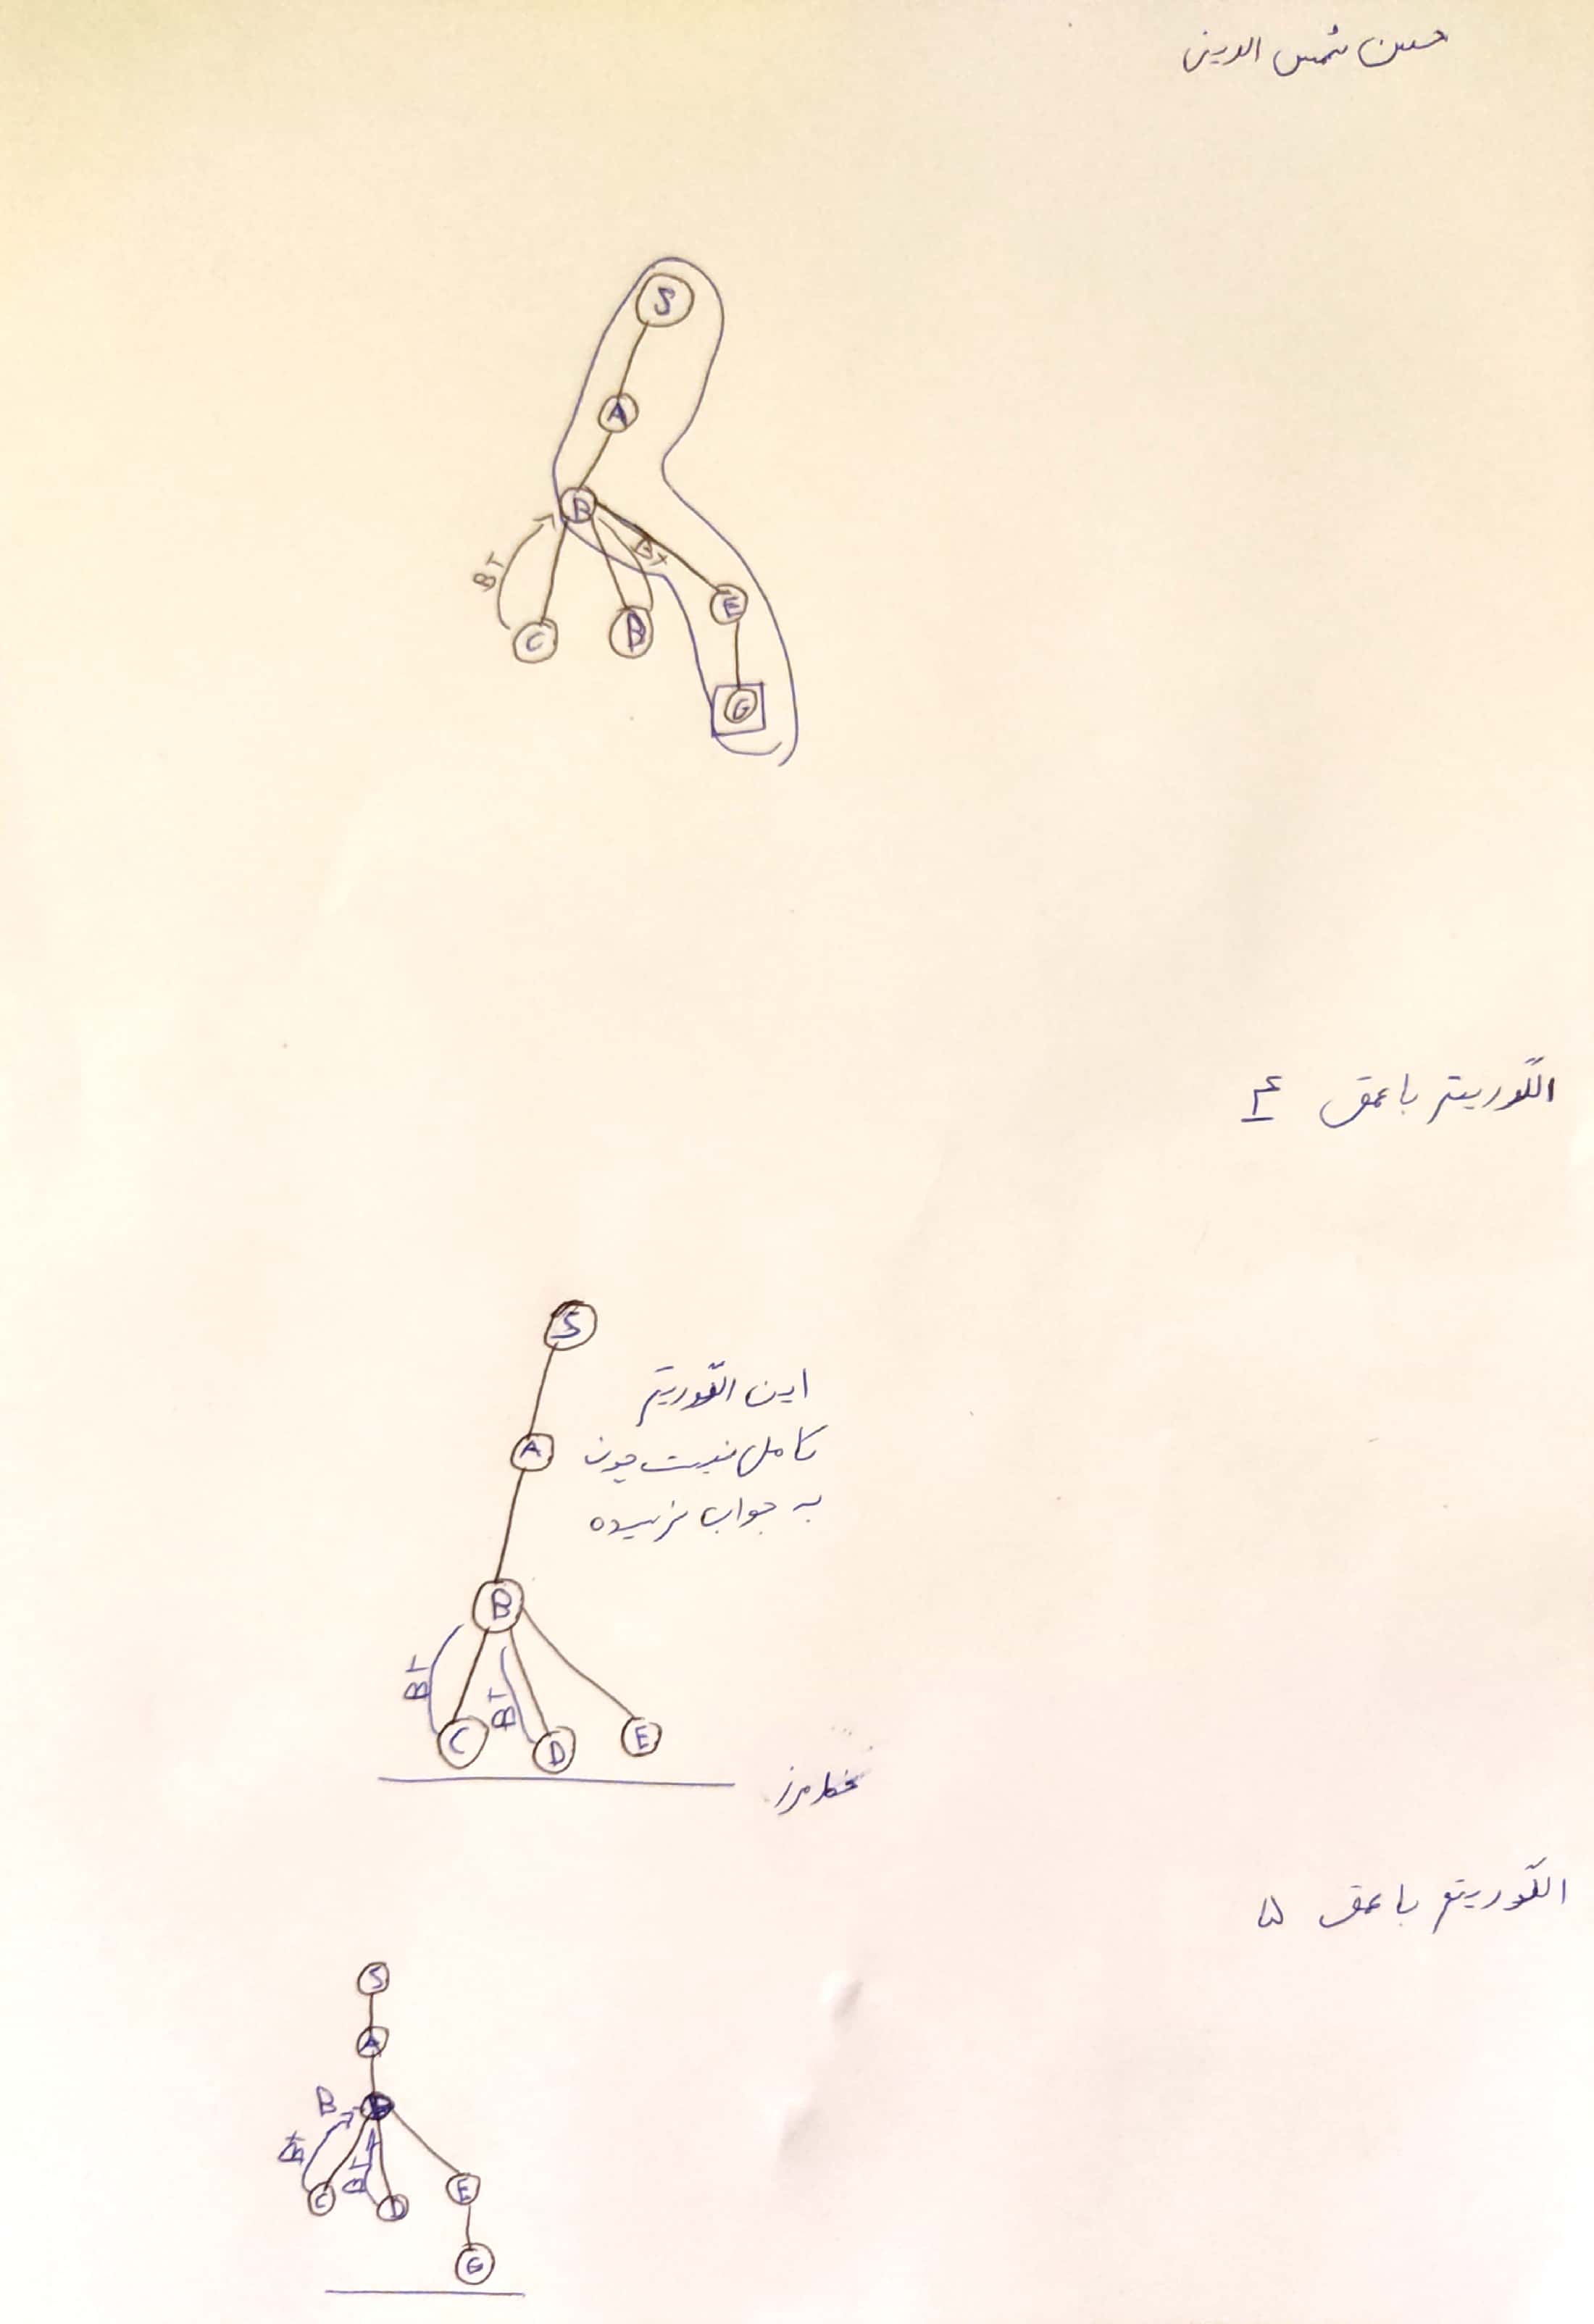 حسن شمس الدینی
S
A
B
BT
BT
C
D
E
G
الگوریتم با عمق ۴
S
این الگوریتم
A
کامل نیست چون
به جواب نرسیده
B
BT
BT
C
D
E
خط مرز
الگوریتم با عمق ۵
S
A
B
BT
BT
C
D
E
G